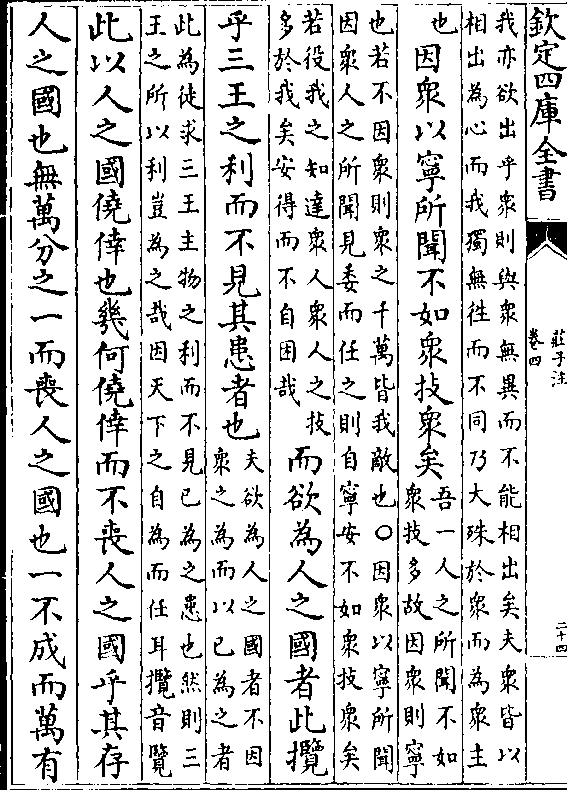 欽定四庫全書
莊子注
卷四
二十四
我亦欲出乎衆則與衆無異而不能相出矣夫衆皆以
相出為心而我獨無徃而不同乃大殊於衆而為衆主
也
因衆以寧所聞不如衆技衆矣
吾一人之所聞不如
衆技多故因衆則寧
也若不因衆則衆之千萬皆我敵也〇因衆以寧所聞
因衆人之所聞見委而任之則自寧安不如衆技衆矣
若役我之知達衆人衆人之技
多於我矣安得而不自困哉
而欲為人之國者此攬
乎三王之利而不見其患者也
夫欲為人之國者不因
衆之為而以已為之者
此為徒求三王主物之利而不見已為之患也然則三
王之所以利豈為之哉因天下之自為而任耳攬音覽
此以人之國僥倖也幾何僥倖而不喪人之國乎其存
人之國也無萬分之一而喪人之國也一不成而萬有